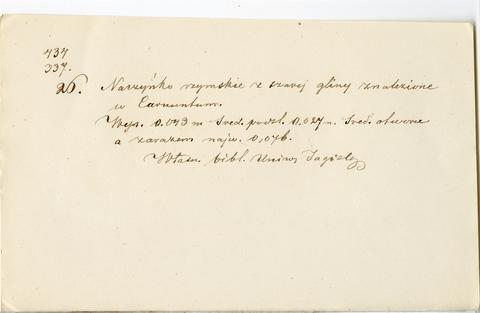 434
337.
26. Naczyńko rzymskie z szarej gliny znalezione
w Carnuntum.
Wys. 0.043 m Śred. podst. 0.027 m. Śred. otworu
a zarazem najw. 0,046.
Własn. bibl. Uniwer. Jagiell.